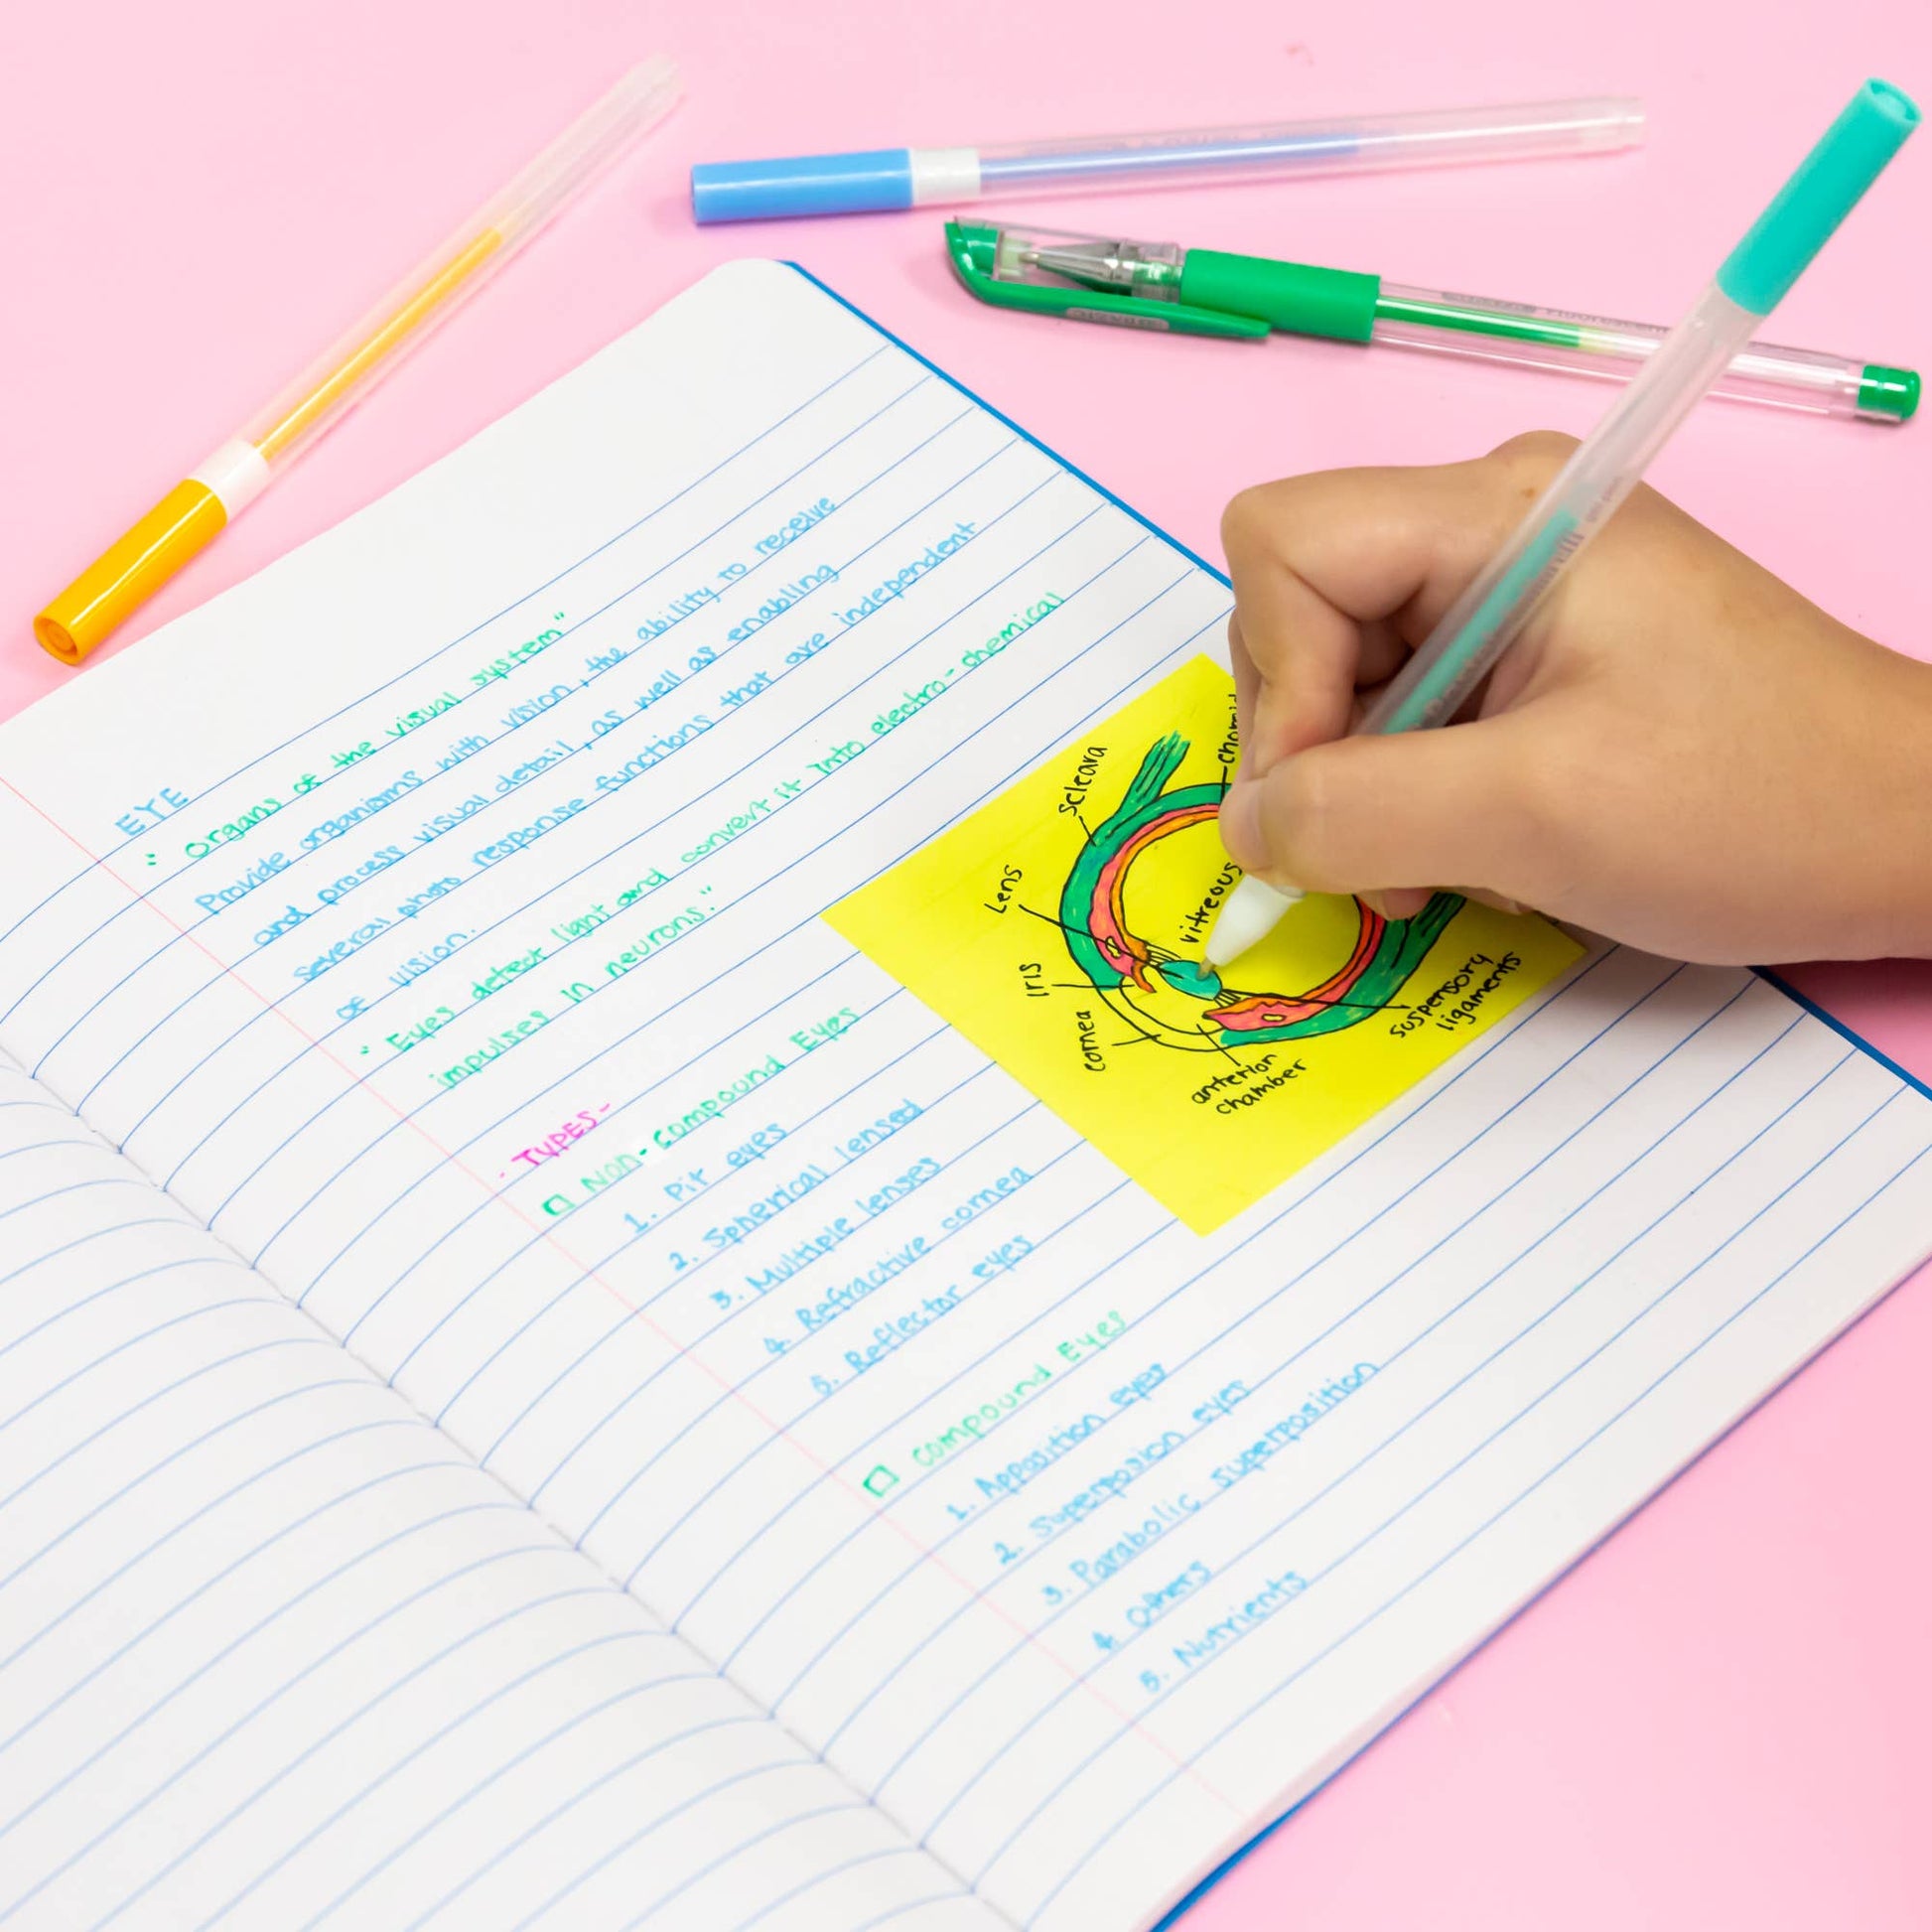 EYE
" Organs of the visual system"
Provide organisms with vision, the ability to receive
and process visual detail, as well as enabling
several photo response functions that are independent
of vision.
" Eyes detect light and convert it into electro-chemical
impulses in neurons."
- TYPES -
□ Non-compound Eyes
1. Pit eyes
2. Spherical lensed
3. Multiple lenses
4. Refractive cornea
5. Reflector eyes
□ compound Eyes
1. Apposition eyes
2. Superposion eyes
3. Parabolic superposition
4. Others
5. Nutrients
Scleara
Lens
Iris
cornea
vitreous
anterion
chamber
suspensory
ligaments